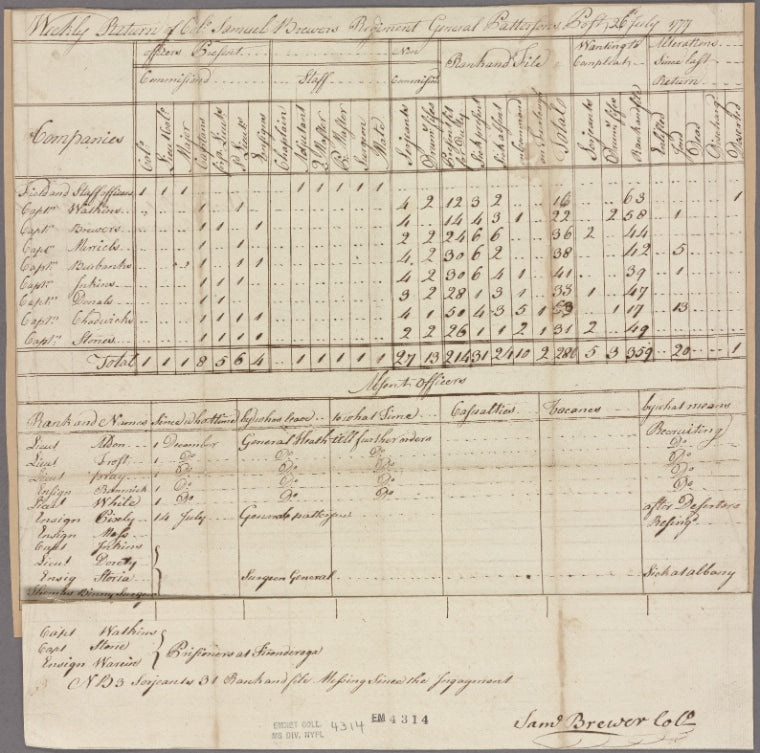 Weekly Return of Colo. Samuel Brewers Regiment General Pattersons Post 26 July 1777
Officers Present Non Rank and File Wanting to Alterations
Commisiond Staff Commision Compleat Since last
Return
Companies Colo. Major Captains Ensigns Chaplain Adjutant Qr Master Py Master Surgeon Mate Serjeants Sick present Sick absent on Command on Furlough Total Serjeants Rank and file Enlisted Dead Discharg Deserted
Field and Staff officers 1 1 1 1 1 1 1 1
Captn Watkins 1 1 4 2 12 3 2 16 63 1
Captn Brewers 1 1 1 4 14 4 3 1 22 2 58 1
Captn Merricks 1 1 1 2 2 24 6 6 36 2 44
Captn Burbanks 1 1 1 4 2 30 6 2 38 42 5
Captn Jnkins 1 1 1 4 2 30 6 4 1 41 39 1
Captn Donals 1 1 1 3 2 28 1 3 1 33 1 47
Captn Chadwicks 1 1 1 1 4 1 50 4 3 5 1 53 1 17 13
Captn Stones 1 1 1 1 2 2 26 1 1 2 1 31 2 49
Total 1 1 1 8 5 6 4 1 1 1 1 1 27 13 214 31 24 10 2 280 5 3 359 20 1
Absent officers
Rank and Names Since what time by whos leave to what time Casualties Vacancies by what means
Lieut 1 December General Heath till further orders Recruiting
Lieut Frost 1 Do Do Do Do
Lieut pray 1 Do Do Do Do
Ensign 1 Do Do Do Do
Lieut White 1 Do after Deserters
Ensign 14 July General patterson Resingd
Ensign Moss
Capt Jnkins
Lieut
Ensig Storia Surgeon General Sick at albany
Binny Surgeon
Capt Watkins
Capt Stone } Prisiners at Ticonderoga
Ensign Warein
N B 3 Serjeants 31 Rank and file Missing Since the Ingagement
EMMET COLL.
MS DIV, NYPL 4314 EM 4314
Saml Brewer Colo